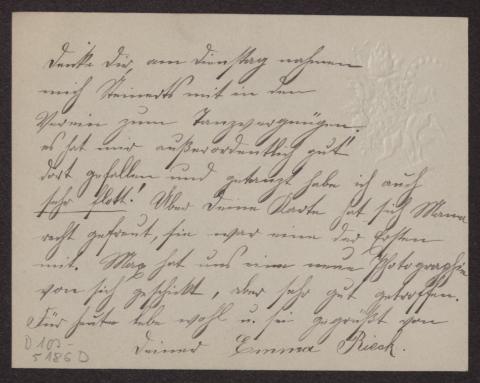 Denke Dir, am Dienstag nahmen
mich Steinerts mit in den
Verein zum Tanzvergnügen.
es hat mir außerordentlich gut
dort gefallen und getanzt habe ich auch
sehr flott! Über Deine Karte hat sich Mama
recht gefreut, sie war eine der Ersten
mit. Max hat uns eine neue Photographie
von sich geschickt, aber sehr gut getroffen.
Für heute lebe wohl u. sei gegrüßt von
Deiner Emma Rieck.
5186 D